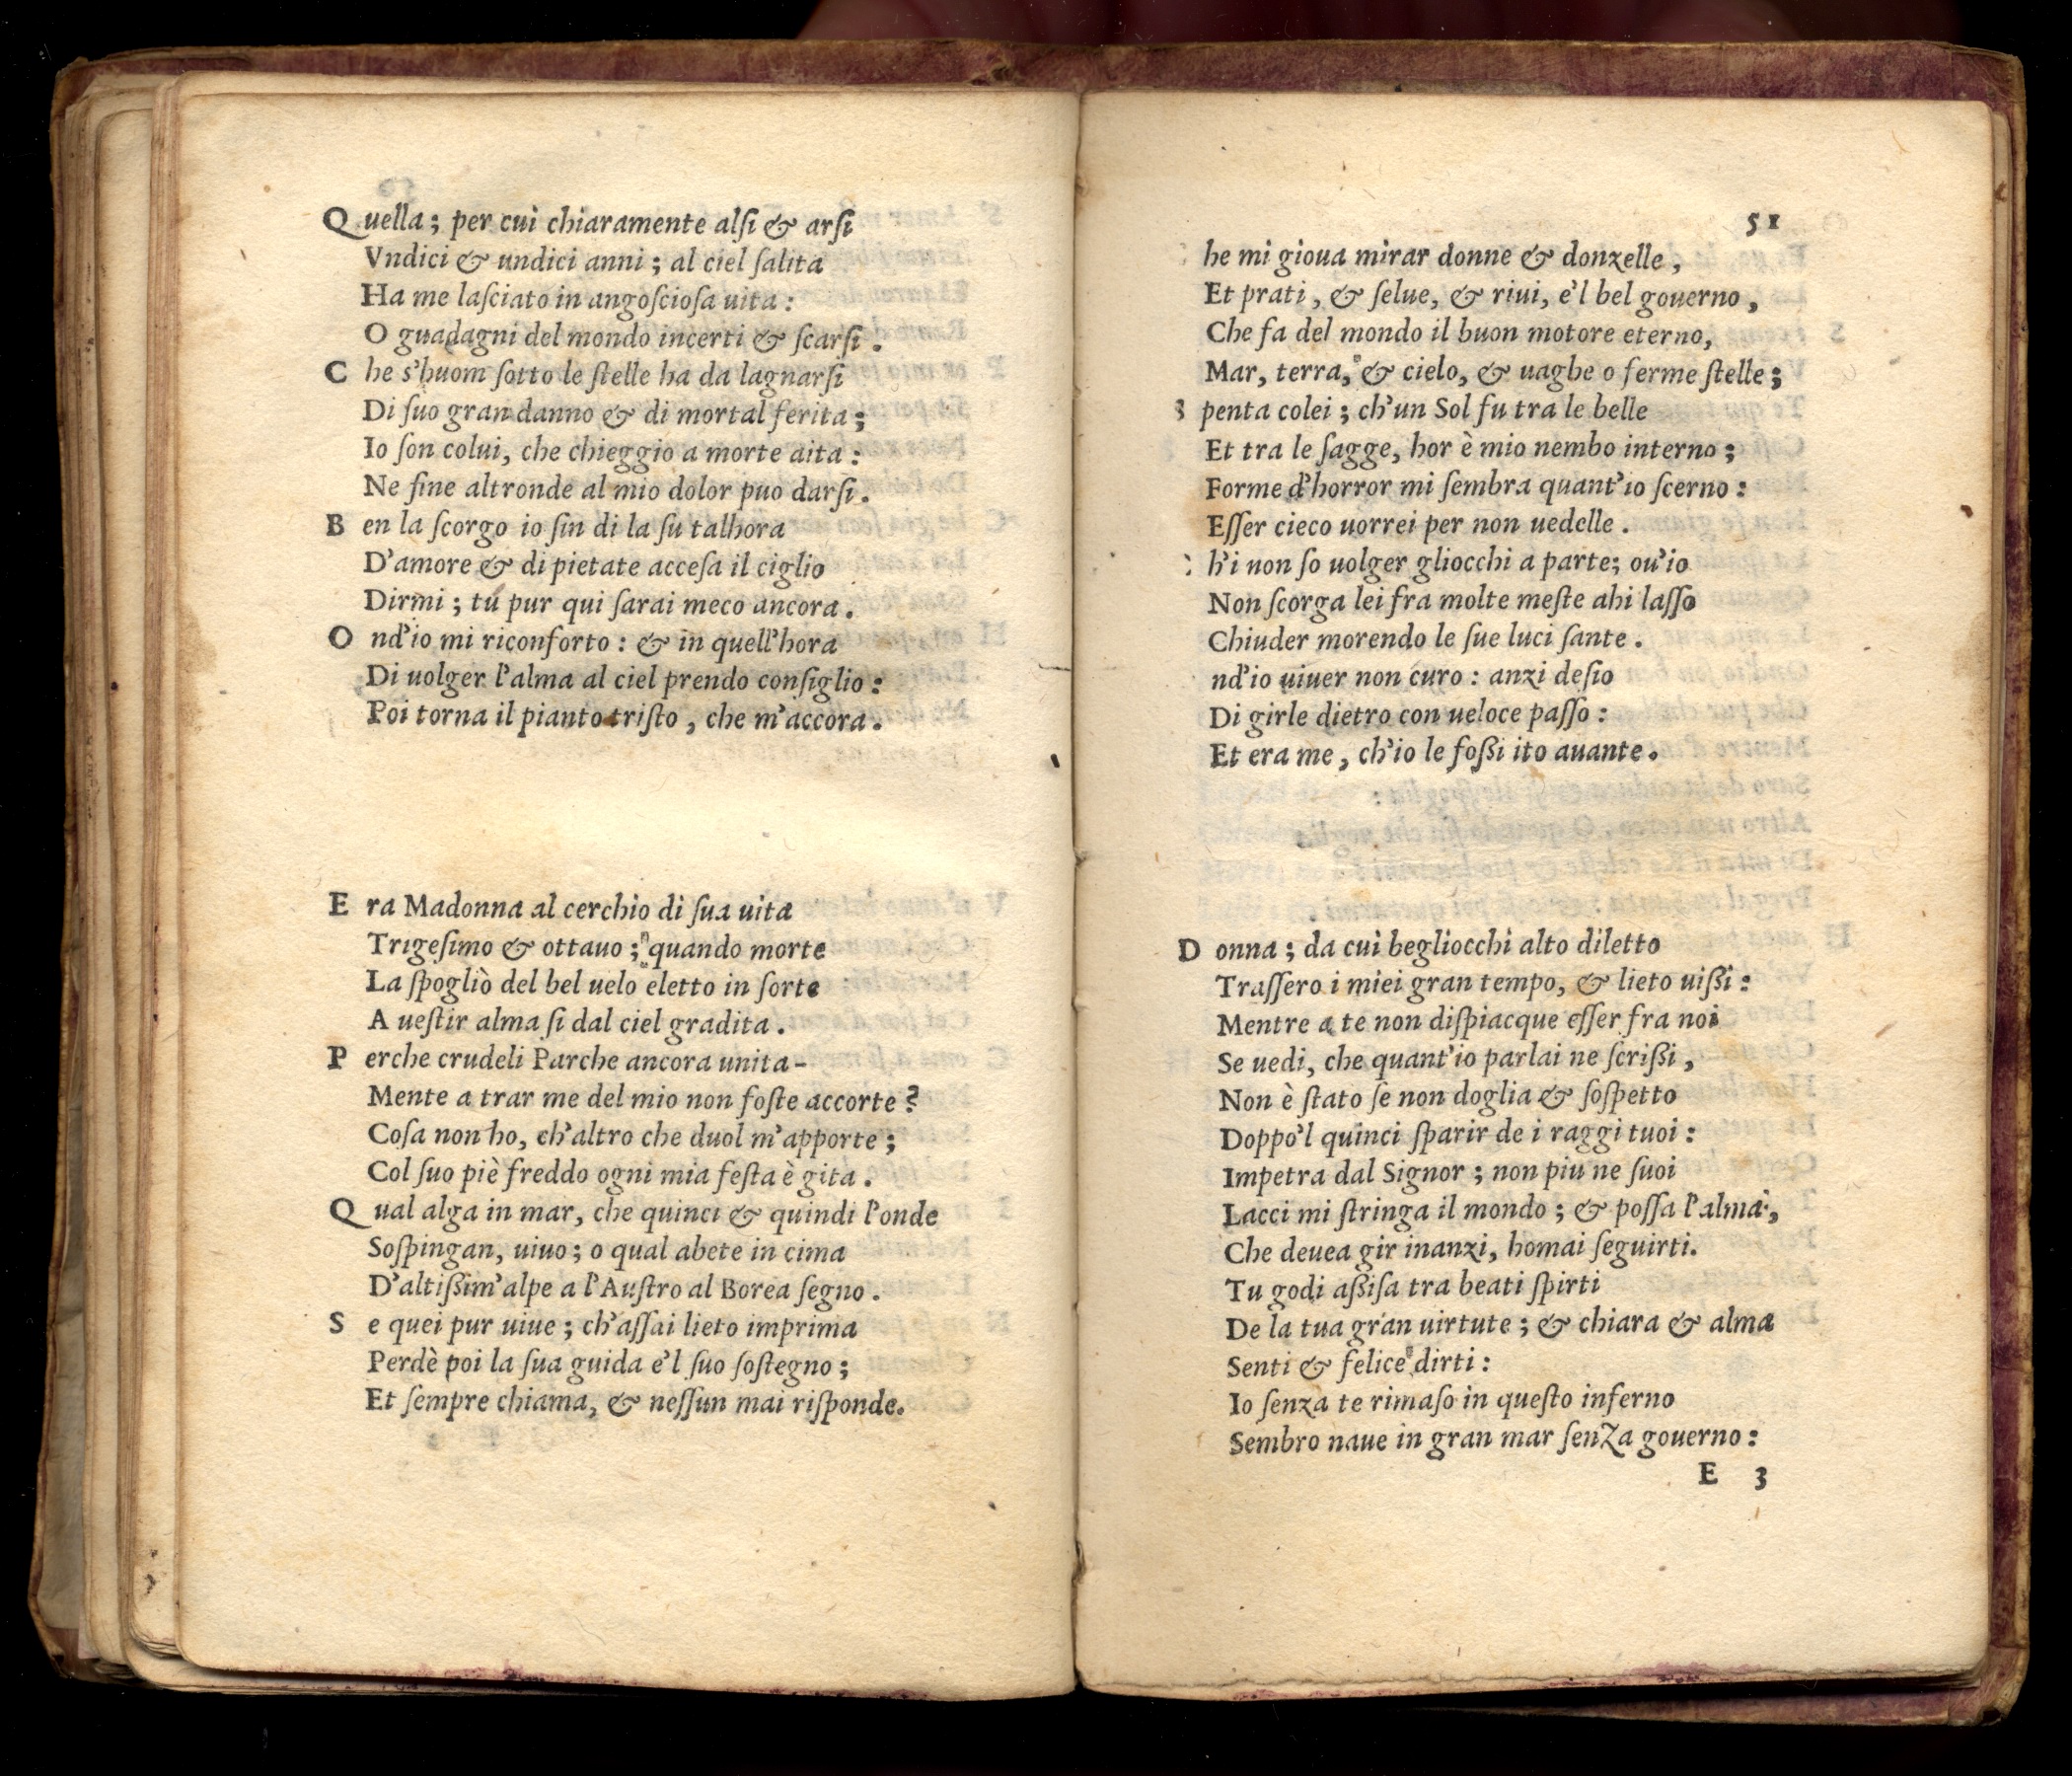 Quella; per cui chiaramente alſi & arſi
Vndici & undici anni; al ciel ſalita
Ha me laſciato in angoſcioſa uita:
O guadagni del mondo incerti & ſcarſi.
C he s'huom ſotto le ſtelle ha da lagnarſi
Di ſuo gran danno & di mortal ferita;
Io ſon colui, che chieggio a morte aita:
Ne fine altronde al mio dolor puo darſi.
B en la ſcorgo io ſin di la ſu talhora
D'amore & di pietate acceſa il ciglio
Dirmi; tu pur qui ſarai meco ancora.
O nd'io mi riconforto: & in quell'hora
Di uolger l'alma al ciel prendo conſiglio:
Poi torna il pianto triſto, che m'accora.
E ra Madonna al cerchio di ſua uita
Trigeſimo & ottauo; quando morte
La ſpogliò del bel uelo eletto in ſorte
A ueſtir alma ſi dal ciel gradita.
P erche crudeli Parche ancora unita-
Mente a trar me del mio non foſte accorte?
Coſa non ho, ch'altro che duol m'apporte;
Col ſuo piè freddo ogni mia feſta è gita.
Q ual alga in mar, che quinci & quindi l'onde
Soſpingan, uiuo; o qual abete in cima
D'altiſsim'alpe a l'Auſtro al Borea ſegno.
S e quei pur uiue; ch'aſſai lieto imprima
Perdè poi la ſua guida e'l ſuo ſoſtegno;
Et ſempre chiama, & neſſun mai riſponde.
51
he mi gioua mirar donne & donzelle,
Et prati, & ſelue, & riui, e'l bel gouerno,
Che fa del mondo il buon motore eterno,
Mar, terra, & cielo, & uaghe o ferme ſtelle;
S penta colei; ch'un Sol fu tra le belle
Et tra le ſagge, hor è mio nembo interno;
Forme d'horror mi ſembra quant'io ſcerno:
Eſſer cieco uorrei per non uedelle.
h'i non ſo uolger gliocchi a parte; ou'io
Non ſcorga lei fra molte meſte ahi laſſo
Chiuder morendo le ſue luci ſante.
nd'io uiuer non curo: anzi deſio
Di girle dietro con ueloce paſſo:
Et era me, ch'io le foſsi ito auante.
D onna; da cui begliocchi alto diletto
Traſſero i miei gran tempo, & lieto uiſsi:
Mentre a te non diſpiacque eſſer fra noi
Se uedi, che quant'io parlai ne ſcriſsi,
Non è ſtato ſe non doglia & ſoſpetto
Doppo'l quinci ſparir de i raggi tuoi:
Impetra dal Signor; non piu ne ſuoi
Lacci mi ſtringa il mondo; & poſſa l'alma,
Che deuea gir inanzi, homai ſeguirti.
Tu godi aſsiſa tra beati ſpirti
De la tua gran uirtute; & chiara & alma
Senti & felice dirti:
Io ſenza te rimaſo in queſto inferno
Sembro naue in gran mar ſenza gouerno:
E 3